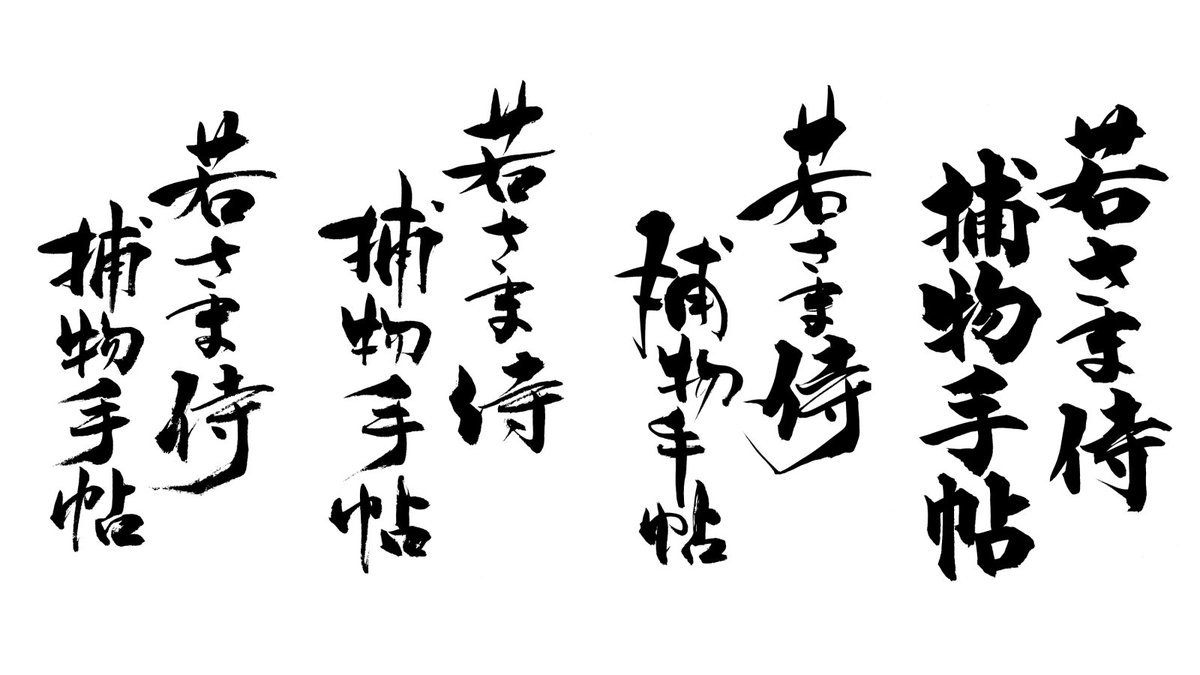 若さま侍
捕物手帖
若さま侍
捕物手帖
若さま侍
捕物手帖
若さま侍
捕物手帖